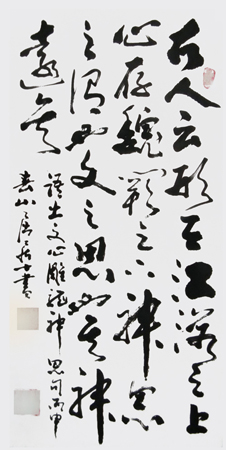 古人云形在江海之上
心存魏闕之下神思
之謂也文之思也其神
遠矣
語出文心雕龍神思句丙申
山居士書